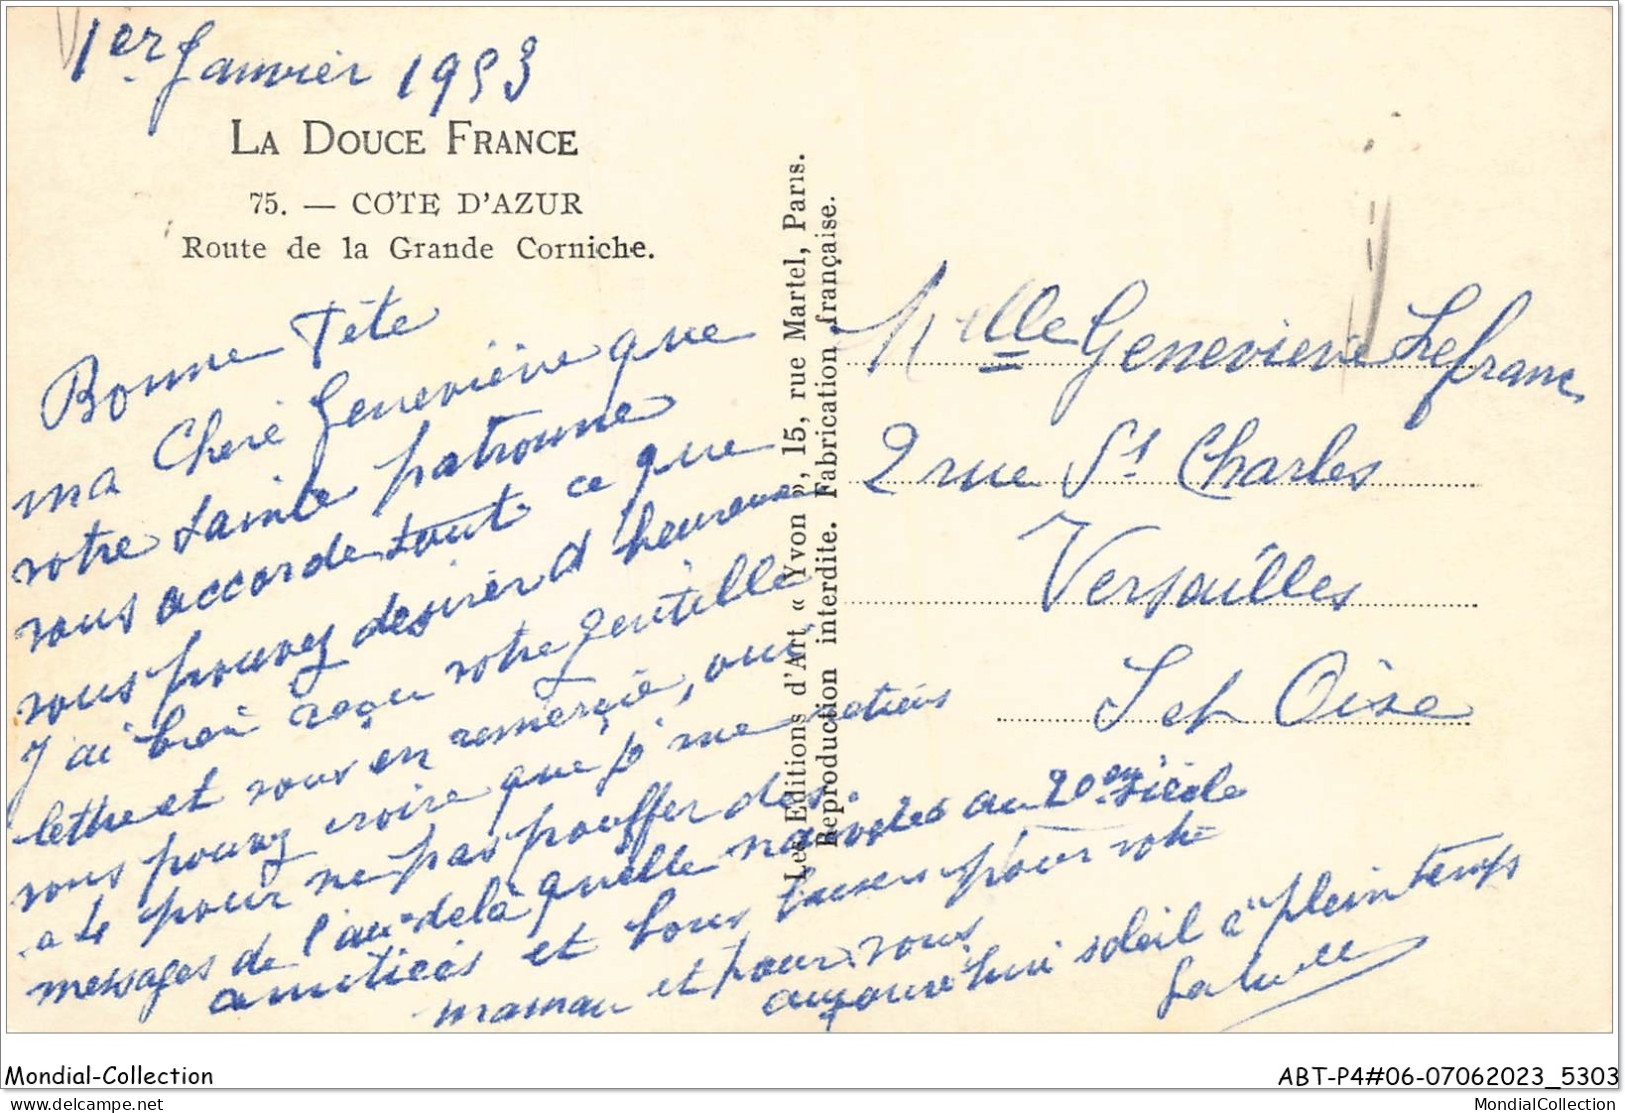 1er Janvier 1953
LA DOUCE FRANCE
75. — COTE D'AZUR
Route de la Grande Corniche.
Bonne Fête
ma Cheré Geneviève que
votre Sainte patronne
vous accorde tout ce que
vous pouvez desirer d heureux
J'ai bien reçu votre gentille
lettre et vous en remerçie, oui
vous pouvez croire que je me retiens
a 4 pour ne pas pouffer des
messages de l'au-delà quelle au 20em siècle
amitiées et bons baisers pour votre
maman et pour vous
aujourd'hui soleil à plein temps
Les Editions d'Art « Yvon », 15, rue Martel, Paris.
Reproduction interdite. Fabrication française.
Melle Genevieve Lefranc
2 rue St Charles
Versailles
S et Oise
Mondial-Collection
ABT-P4#06-07062023_5303
delcampe.net
MondialCollection